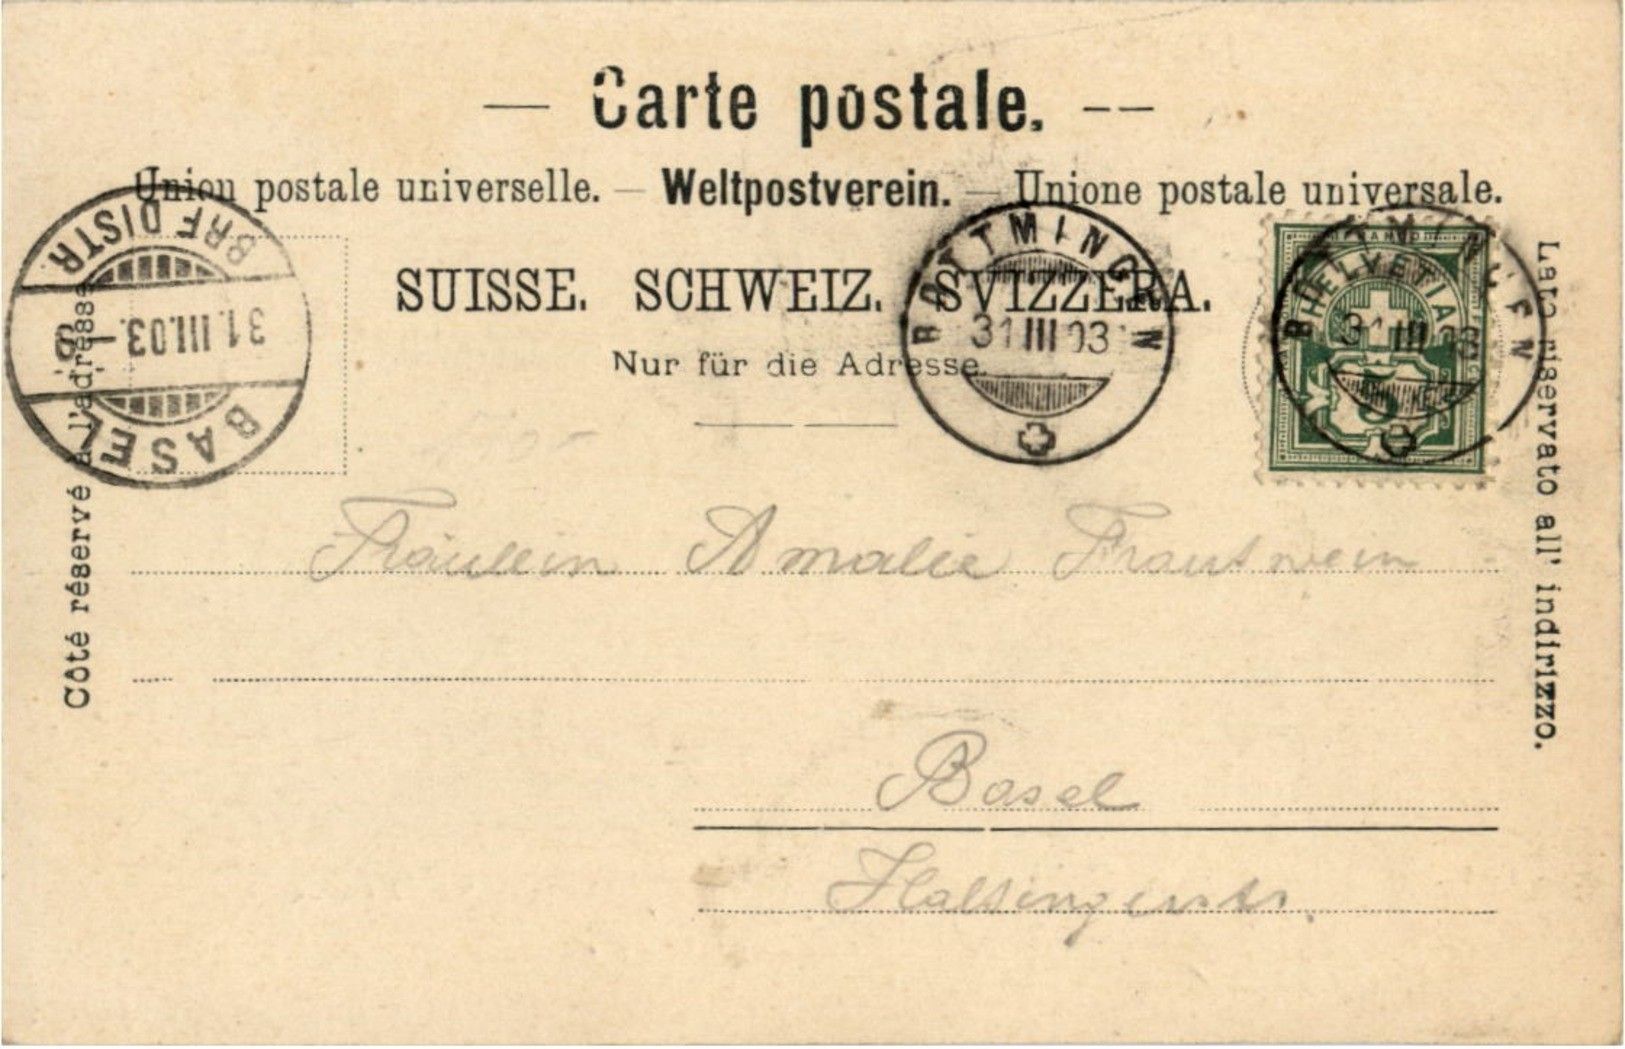 Carte postale.
Union postale universelle. — Weltpostverein. — Unione postale universale.
SUISSE. SCHWEIZ. SVIZZERA.
Nur für die Adresse.
Côté réservé à l'adresse
Lato riservato all' indirizzo.
BASEL
31.III.03.
BRF. DISTR.
BOTTMINGEN
31 III 03
BOTTMINGEN
31 III 03
FRANCO
HELVETIA
5
Fräulein Amalie Trautwein
Basel